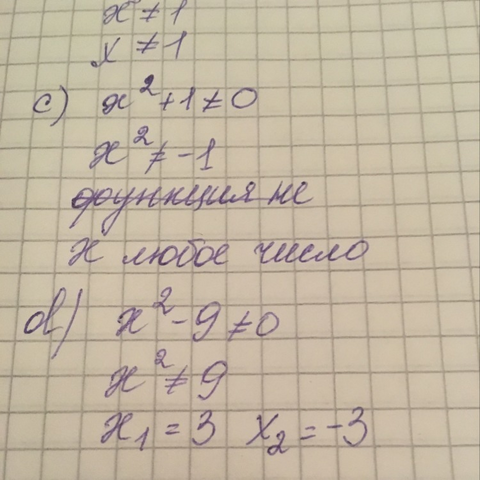 x ≠ 1
x ≠ 1
c) x² + 1 ≠ 0
x² ≠ -1
функция не
x любое число
d) x² - 9 ≠ 0
x² ≠ 9
x₁ = 3 x₂ = -3